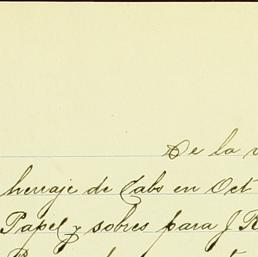 De la
herraje de Cabs en Oct
Papel y sobres para J R